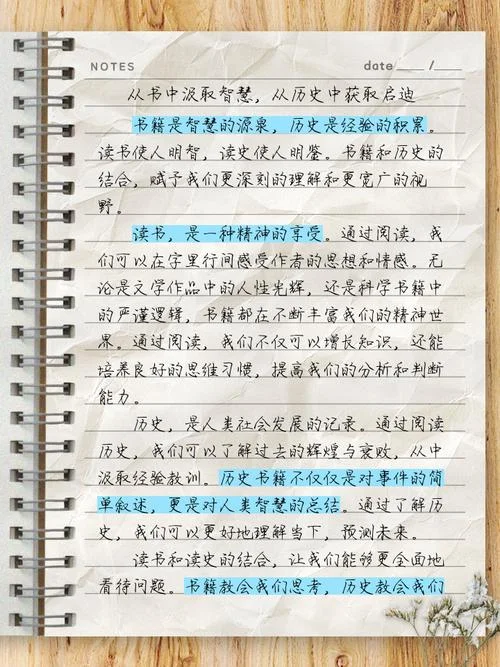 NOTES
date ____ /____
从书中汲取智慧，从历史中获取启迪
书籍是智慧的源泉，历史是经验的积累。
读书使人明智，读史使人明鉴。书籍和历史的
结合，赋予我们更深刻的理解和更宽广的视
野。
读书，是一种精神的享受。通过阅读，我
们可以在字里行间感受作者的思想和情感。无
论是文学作品中的人性光辉，还是科学书籍中
的严谨逻辑，书籍都在不断丰富我们的精神世
界。通过阅读，我们不仅可以增长知识，还能
培养良好的思维习惯，提高我们的分析和判断
能力。
历史，是人类社会发展的记录。通过阅读
历史，我们可以了解过去的辉煌与衰败，从中
汲取经验教训。历史书籍不仅仅是对事件的简
单叙述，更是对人类智慧的总结。通过了解历
史，我们可以更好地理解当下，预测未来。
读书和读史的结合，让我们能够更全面地
看待问题。书籍教会我们思考，历史教会我们